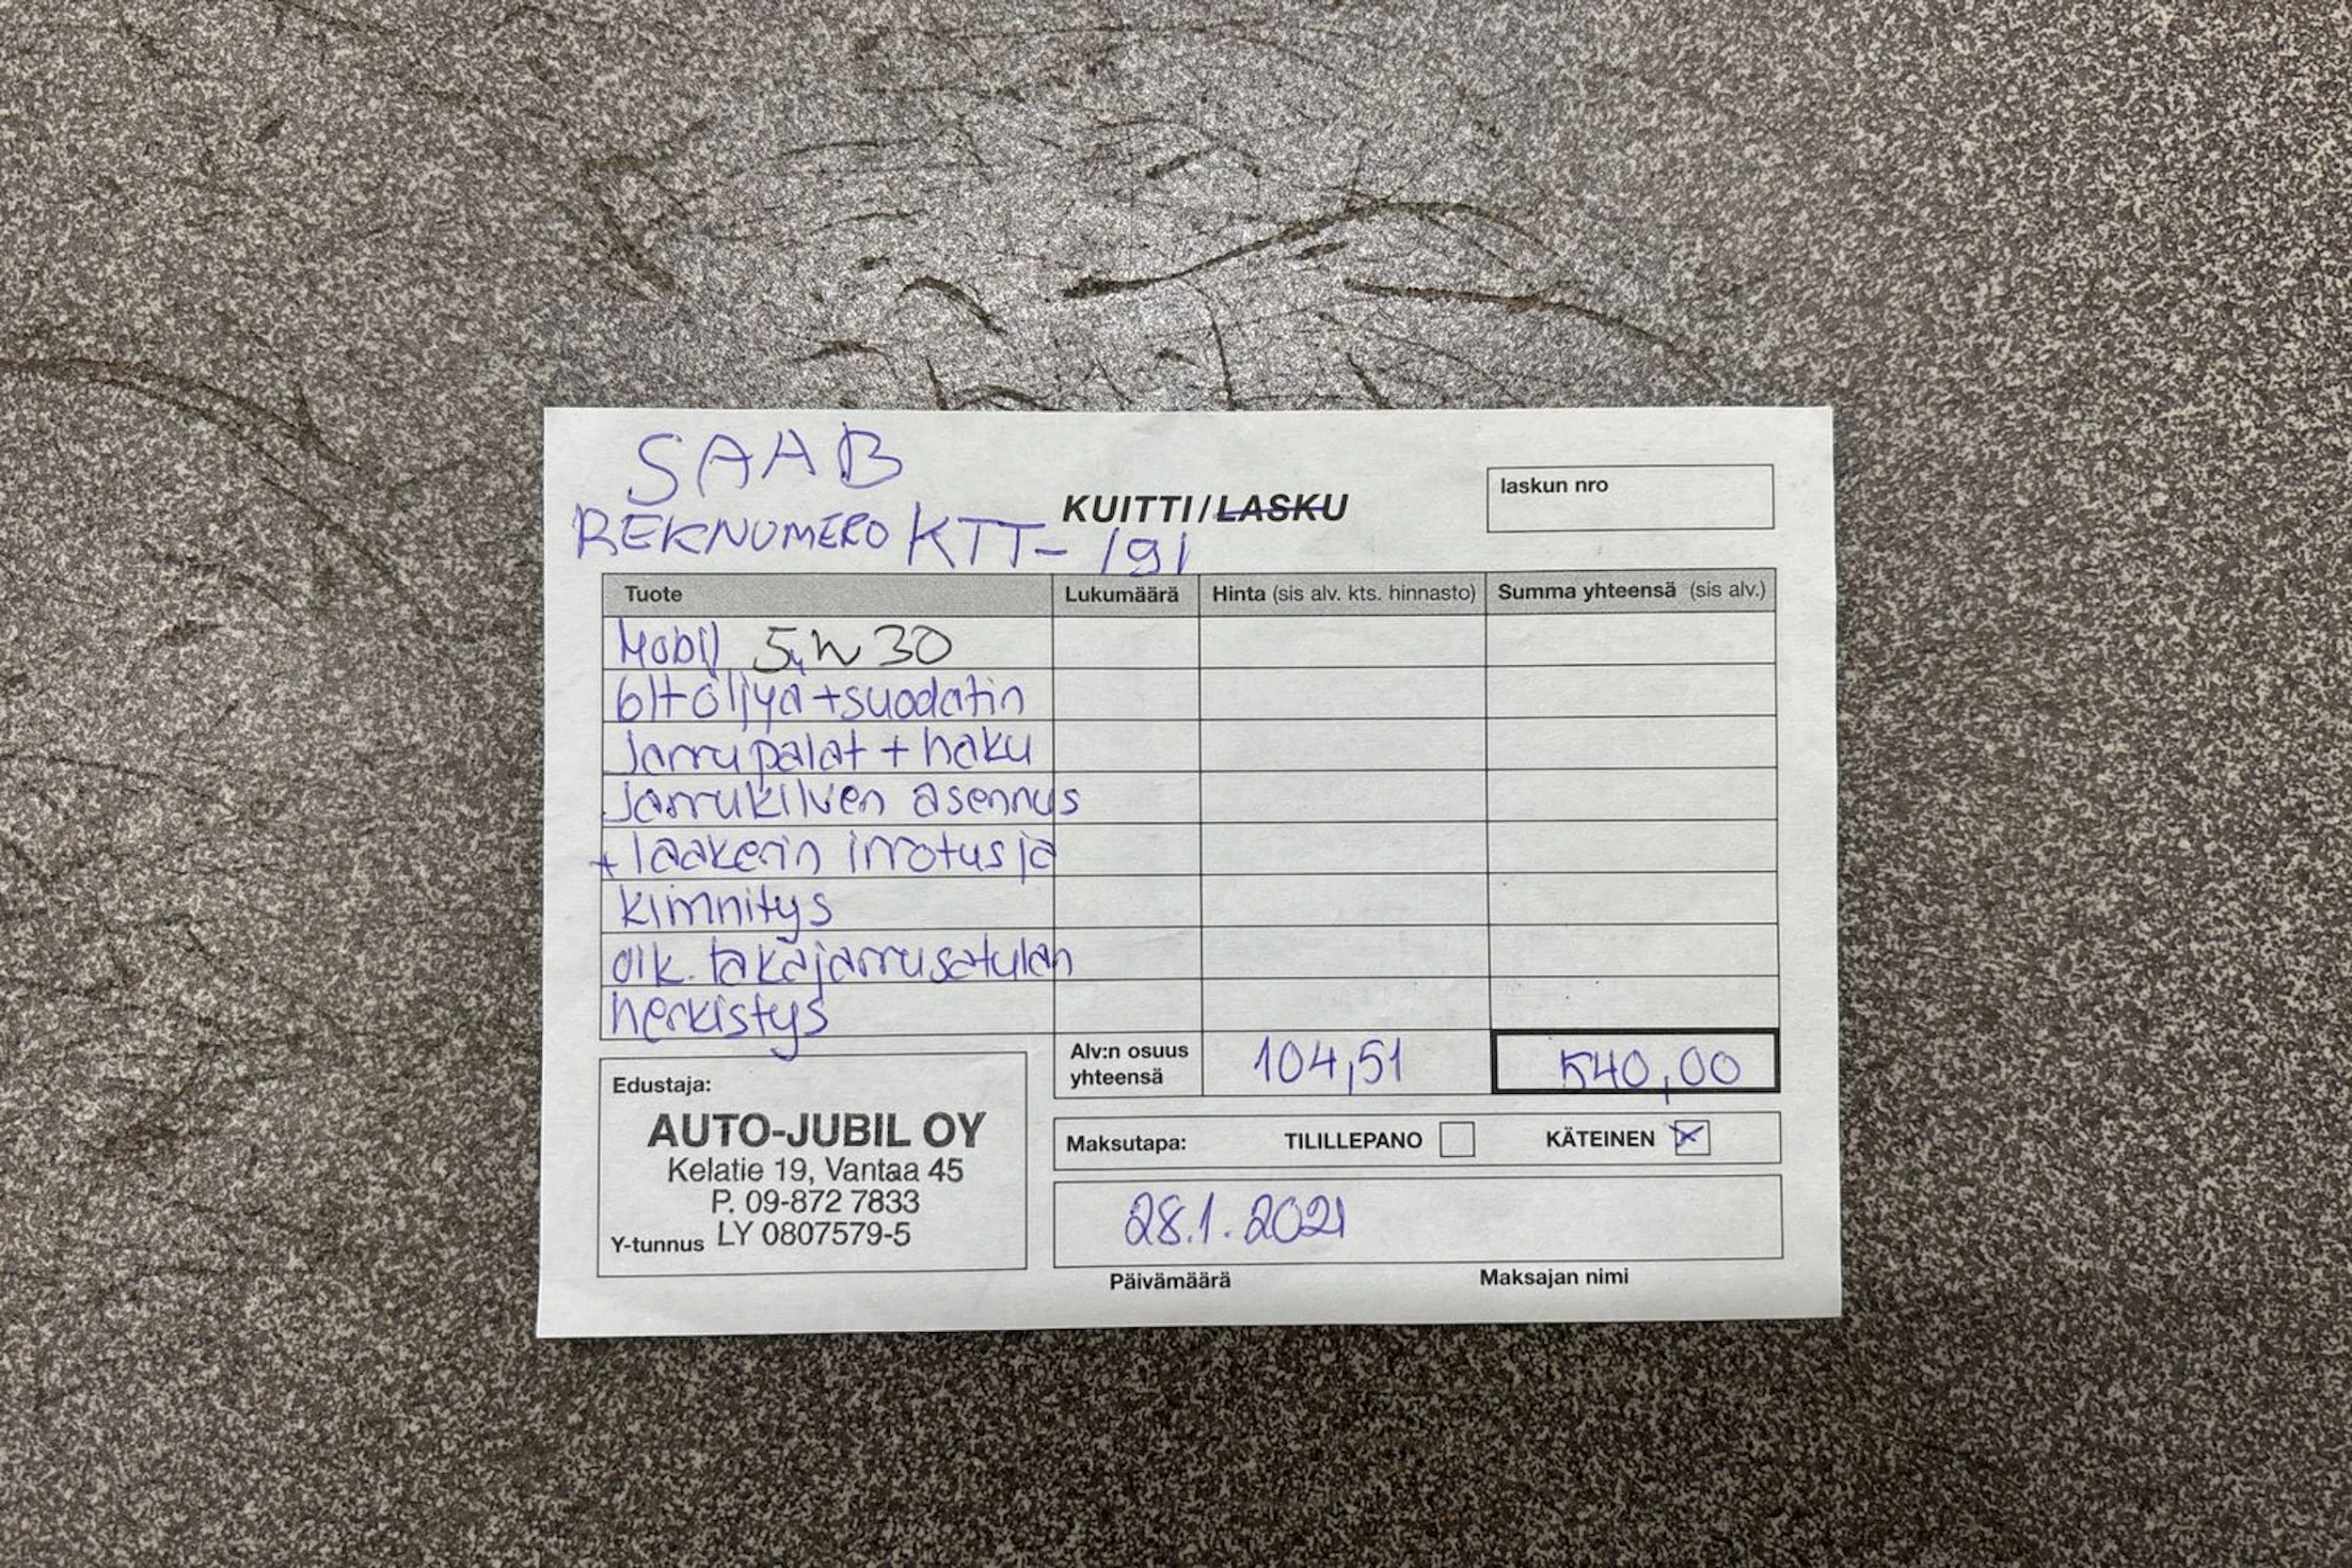 SAAB
REKNUMERO KTT-191
KUITTI/LASKU
laskun nro
Tuote Lukumäärä Hinta (sis alv. kts. hinnasto) Summa yhteensä (sis alv.)
Mobil 5W30
6lt öljyä+suodatin
Jarrupalat + haku
Jarrukilven asennus
+ laakerin irrotus ja
kiinnitys
oik. takajarrusatulan
herkistys
Alv:n osuus yhteensä 104,51 540,00
Edustaja:
AUTO-JUBIL OY
Kelatie 19, Vantaa 45
P. 09-872 7833
Y-tunnus LY 0807579-5
Maksutapa: TILILLEPANO KÄTEINEN
28.1.2021
Päivämäärä Maksajan nimi